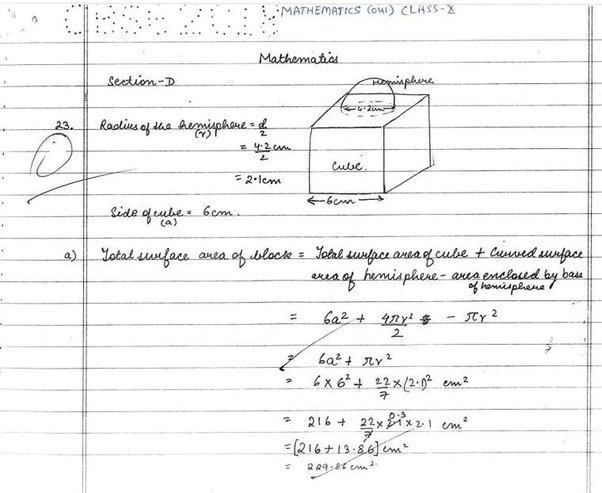 CBSE 2018 MATHEMATICS (041) CLASS-X
Mathematics
Section-D
Hemisphere
4.2cm
23. Radius of the hemisphere = d/2
(r)
= 4.2/2 cm
= 2.1cm
Cube.
6cm
Side of cube = 6cm.
(a)
a) Total surface area of block = Total surface area of cube + Curved surface
area of hemisphere - area enclosed by base
of hemisphere
= 6a² + 4πr²/2 - πr²
= 6a² + πr²
= 6 × 6² + 22/7 × (2.1)² cm²
= 216 + 22/7 × 2.1 × 2.1 cm²
0.3
= [216 + 13.86] cm²
= 229.86 cm²